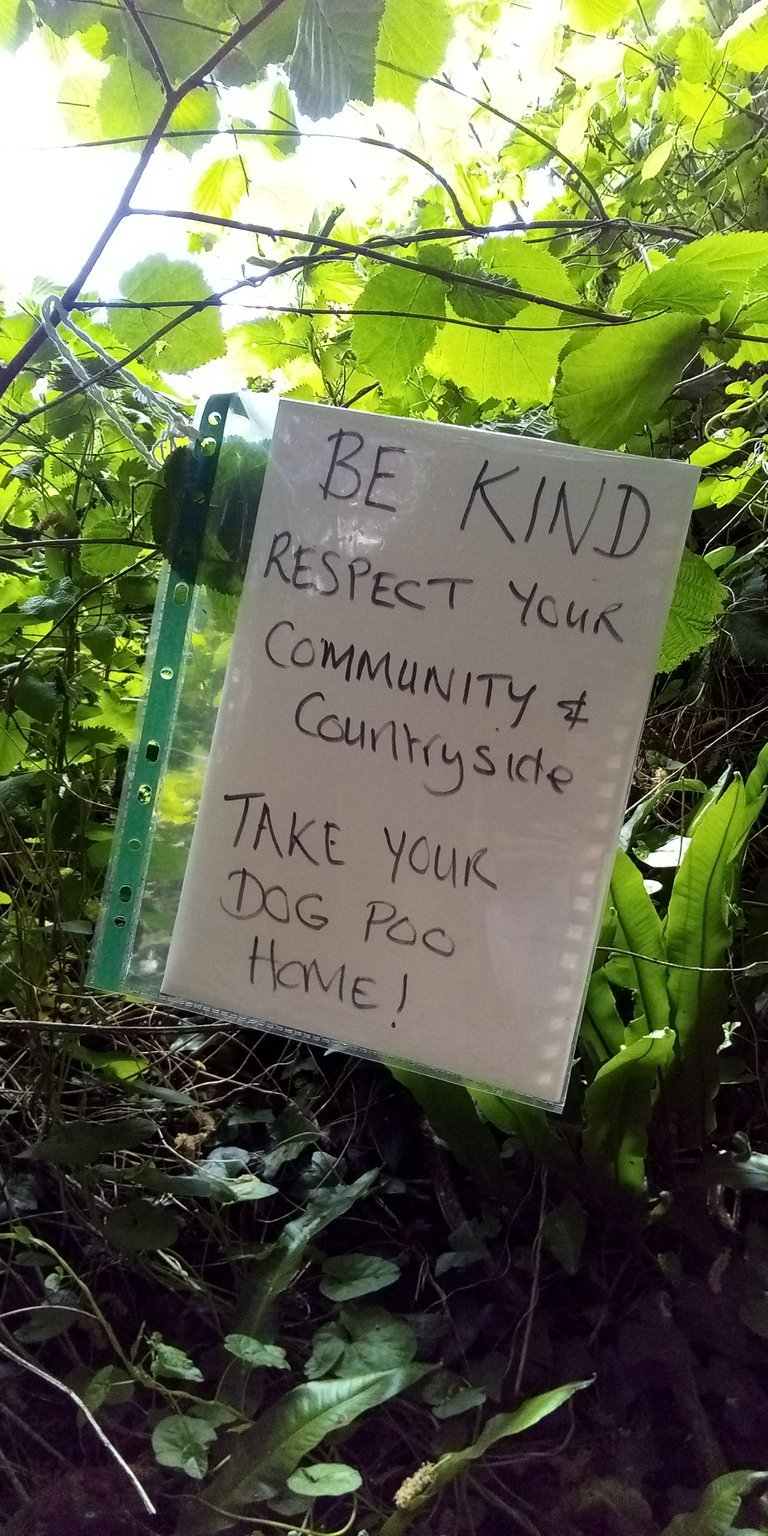 BE KIND
RESPECT YOUR
COMMUNITY &
Countryside
TAKE YOUR
DOG POO
HOME!